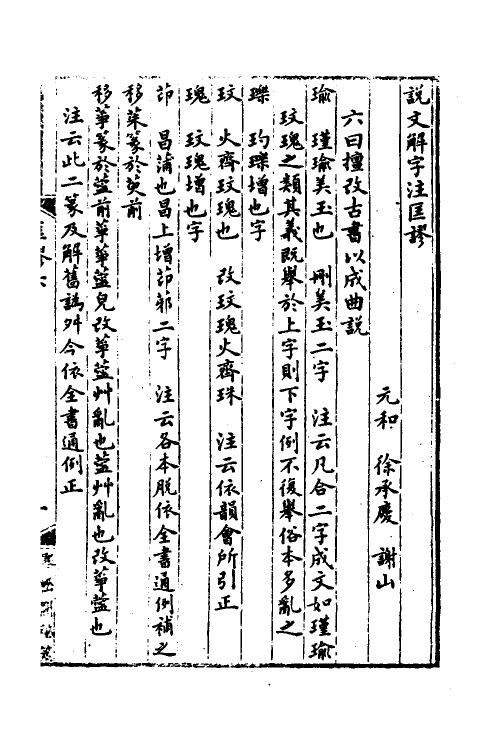 說文解字注匡謬
元和　徐承慶　謝山
六曰擅改古書以成曲說
瑜　瑾瑜美玉也　刪美玉二字　注云凡合二字成文如瑾瑜
玟瑰之類其義既舉於上字則下字例不復舉俗本多亂之
瓅　玓瓅增也字
玟　火齊玟瑰也　改玟瑰火齊珠　注云依韻會所引正
瑰　玟瑰增也字
茚　昌蒲也昌上增茚䓲二字　注云各本脱依全書通例補之
移菋篆於荎前
移葏篆於䔇前葏葏䔇皃改葏䔇艸亂也䔇艸亂也改葏䔇也
注云此二篆及解舊譌舛今依全書通例正
匡謬六
一